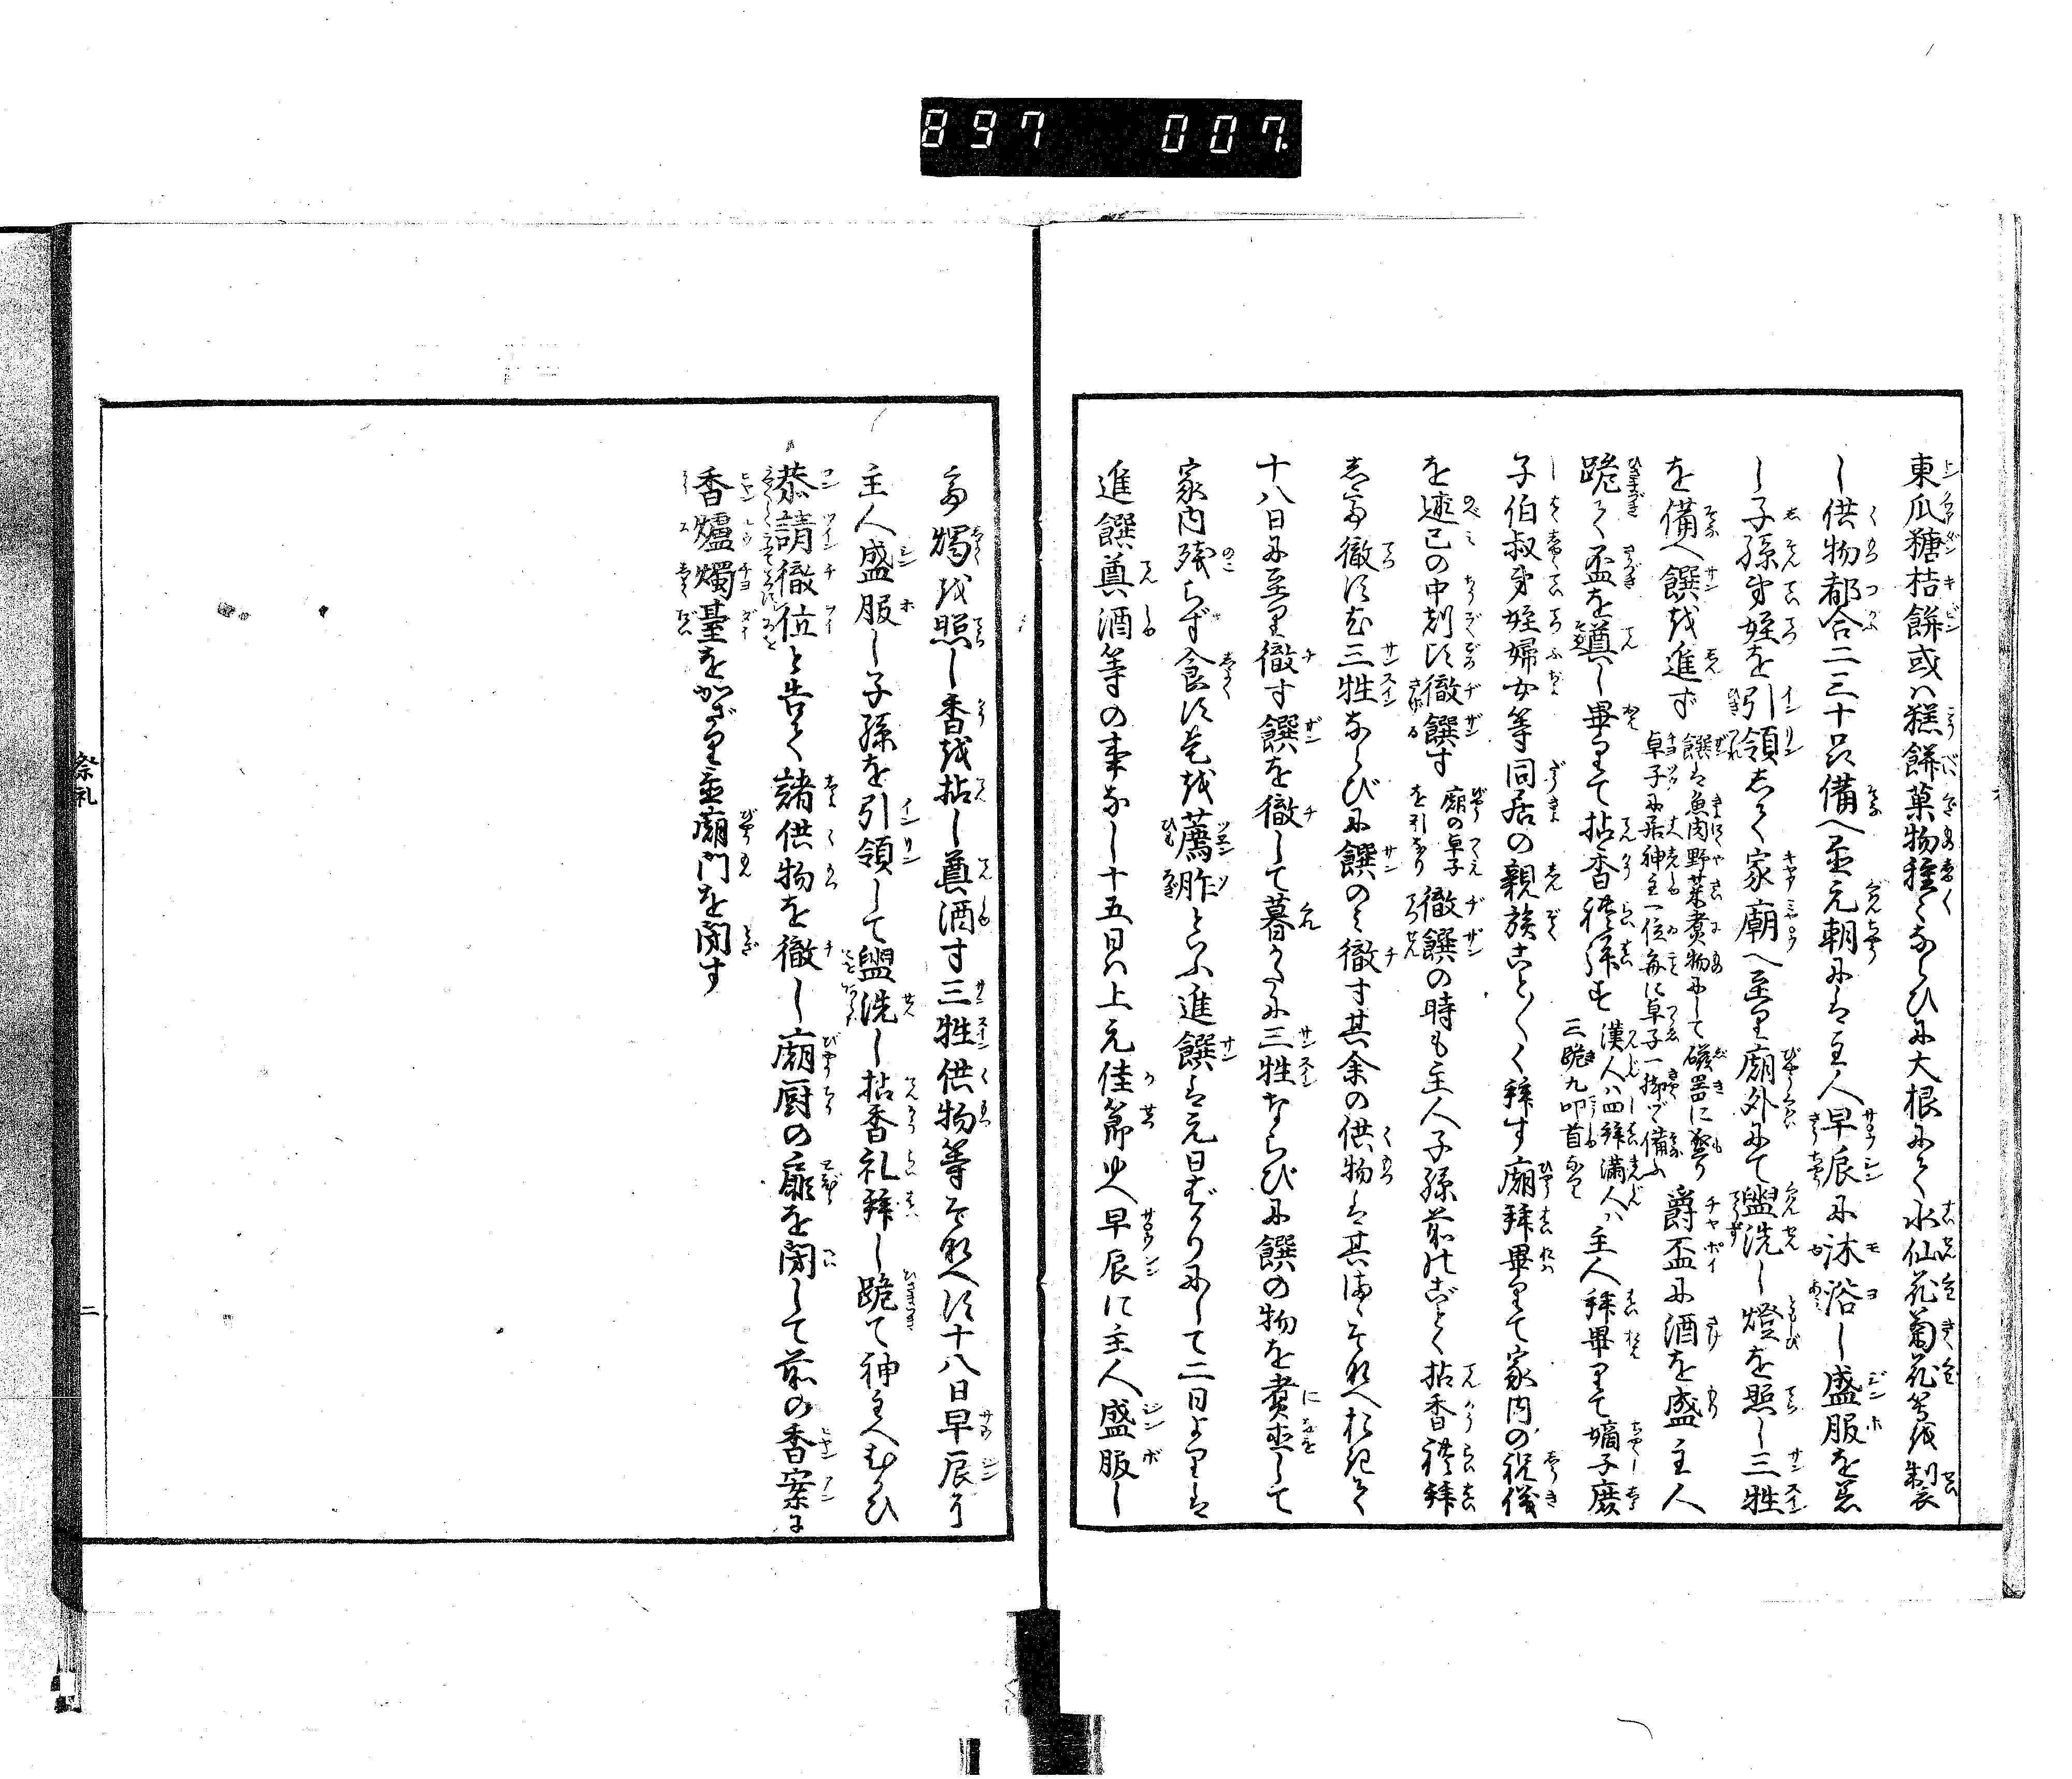 897 007.
東瓜糖桔餅或ハ糕餅菓物種〻ならひに大根にて水仙花菊花等を製
し供物都合二三十品備へ置元朝にハ主人早辰に沐浴し盛服を着
し子孫弟姪を引領して家廟へ至り廟外にて盥洗し燈を照し三牲
を備へ饌を進ず
饌ハ魚肉野菜煮物にして磁器に盛り
卓子に居神主一位毎に卓子一脚づゝ備ふ
爵盃に酒を盛主人
跪て盃を奠し畢りて拈香礼拝す
漢人ハ四拜満人ハ
三跪九叩首なり
主人拜畢りて嫡子庶
子伯叔弟姪婦女等同居の親族こと〴〵く拜す廟拜畢りて家内の祝儀
を述已の中刻に徹饌す
廟の卓子
を引なり
徹饌の時も主人子孫前のごとく拈香礼拜
して徹すに三牲ならびに饌のミ徹す其余の供物ハ其侭そなへおきて
十八日に至り徹す饌を徹して暮方に三牲ならびに饌の物を煮直して
家内残らず食す是を薦胙といふ進饌ハ元日ばかりにして二日よりハ
進饌奠酒等の事なし十五日ハ上元佳節ゆへ早辰に主人盛服し
て燭を照し香を拈し奠酒す三牲供物等そなへず十八日早辰に
主人盛服し子孫を引領して盥洗し拈香礼拜し跪て神主へむかひ
恭請徹位と告て諸供物を徹し廟厨の扉を閉して前の香案に
香爐燭臺をかざり置廟門を閉す
祭礼
二